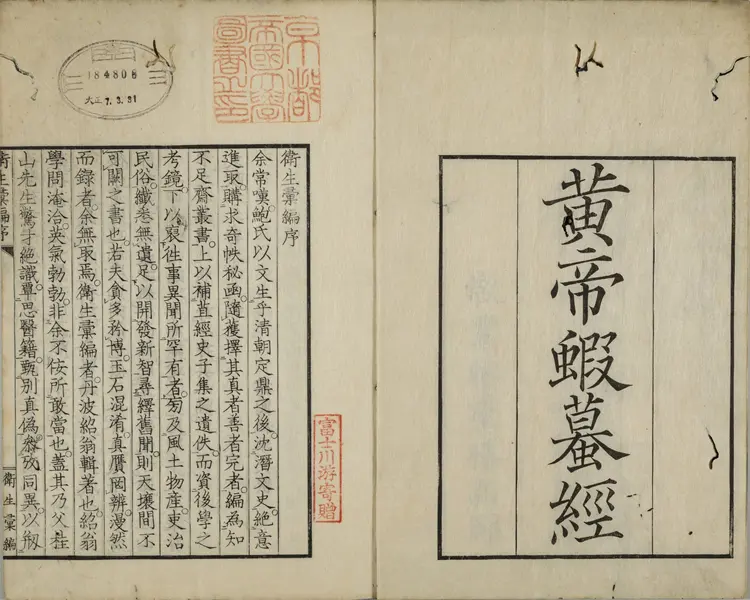 黄帝蝦蟇經
京都
帝國大學
圖書之印
184806
大正 7.3.31
衛生彙編序
余常嘆鮑氏以文生乎清朝定鼎之後。沈潛文史。絶意
進取。購求奇帙秘函。隨獲擇其真者善者完者。編為知
不足齋叢書。上以補苴經史子集之遺佚。而資後學之
考鏡。下以裒往事異聞所罕有者。旁及風土物産。吏治
民俗。纖巻無遺。足以開發新智。尋繹舊聞。則天壤間不
可闕之書也。若夫貪多矜博。玉石混淆。真贋罔辨。漫然
而録者。余無取焉。衛生彙編者。丹波紹翁輯著也。紹翁
學問淹洽。英氣勃勃。非余不佞所敢當也。蓋其乃父桂
山先生驚才絶識。覃思醫籍。甄別真僞。叅攷同異。以剏
衛生彙編序
衛生彙編
富士川游寄贈